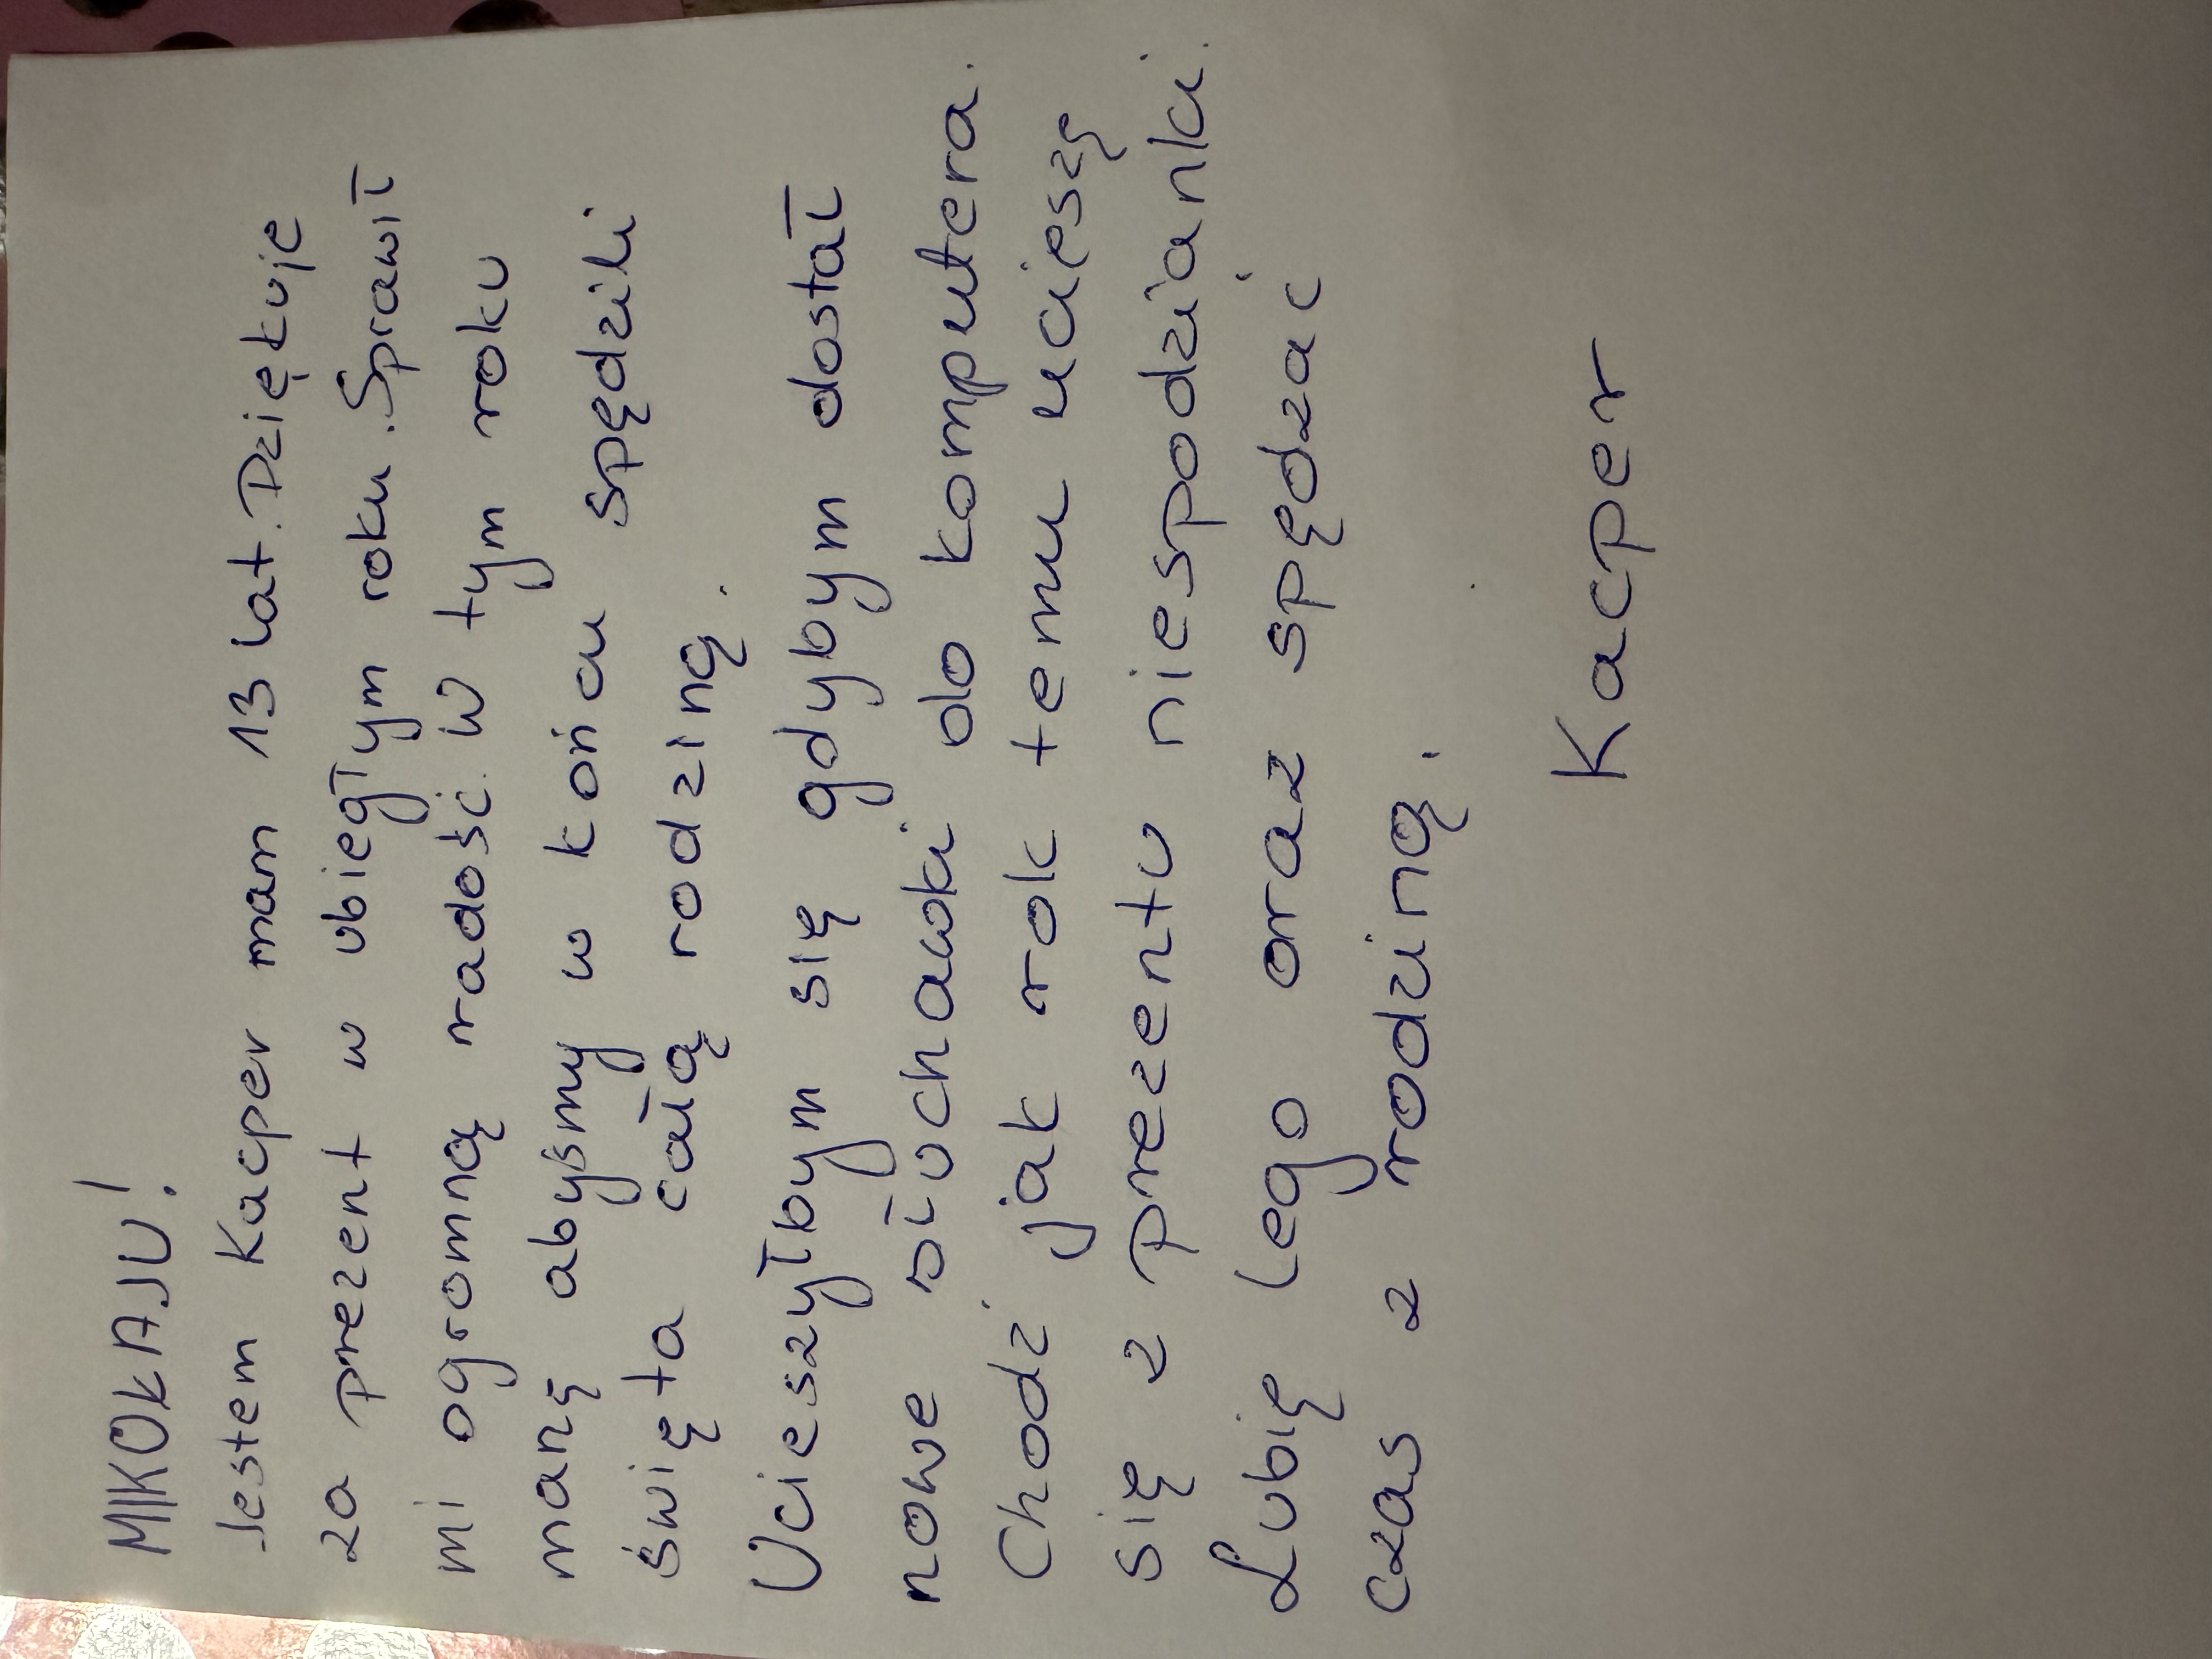 MIKOŁAJU!
Jestem Kacper mam 13 lat. Dziękuje
za prezent w ubiegłym roku. Sprawił
mi ogromną radość. W tym roku
marzę abyśmy w końcu spędzili
święta całą rodziną.
Ucieszyłbym się gdybym dostał
nowe słuchawki do komputera.
Chodź jak rok temu ucieszę
się z prezentu niespodzianki.
Lubię lego oraz spędzać
czas z rodziną.
Kacper